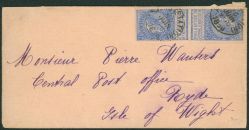 Monsieur Pierre Wauters
Central Post office
Ryde
Isle of Wight